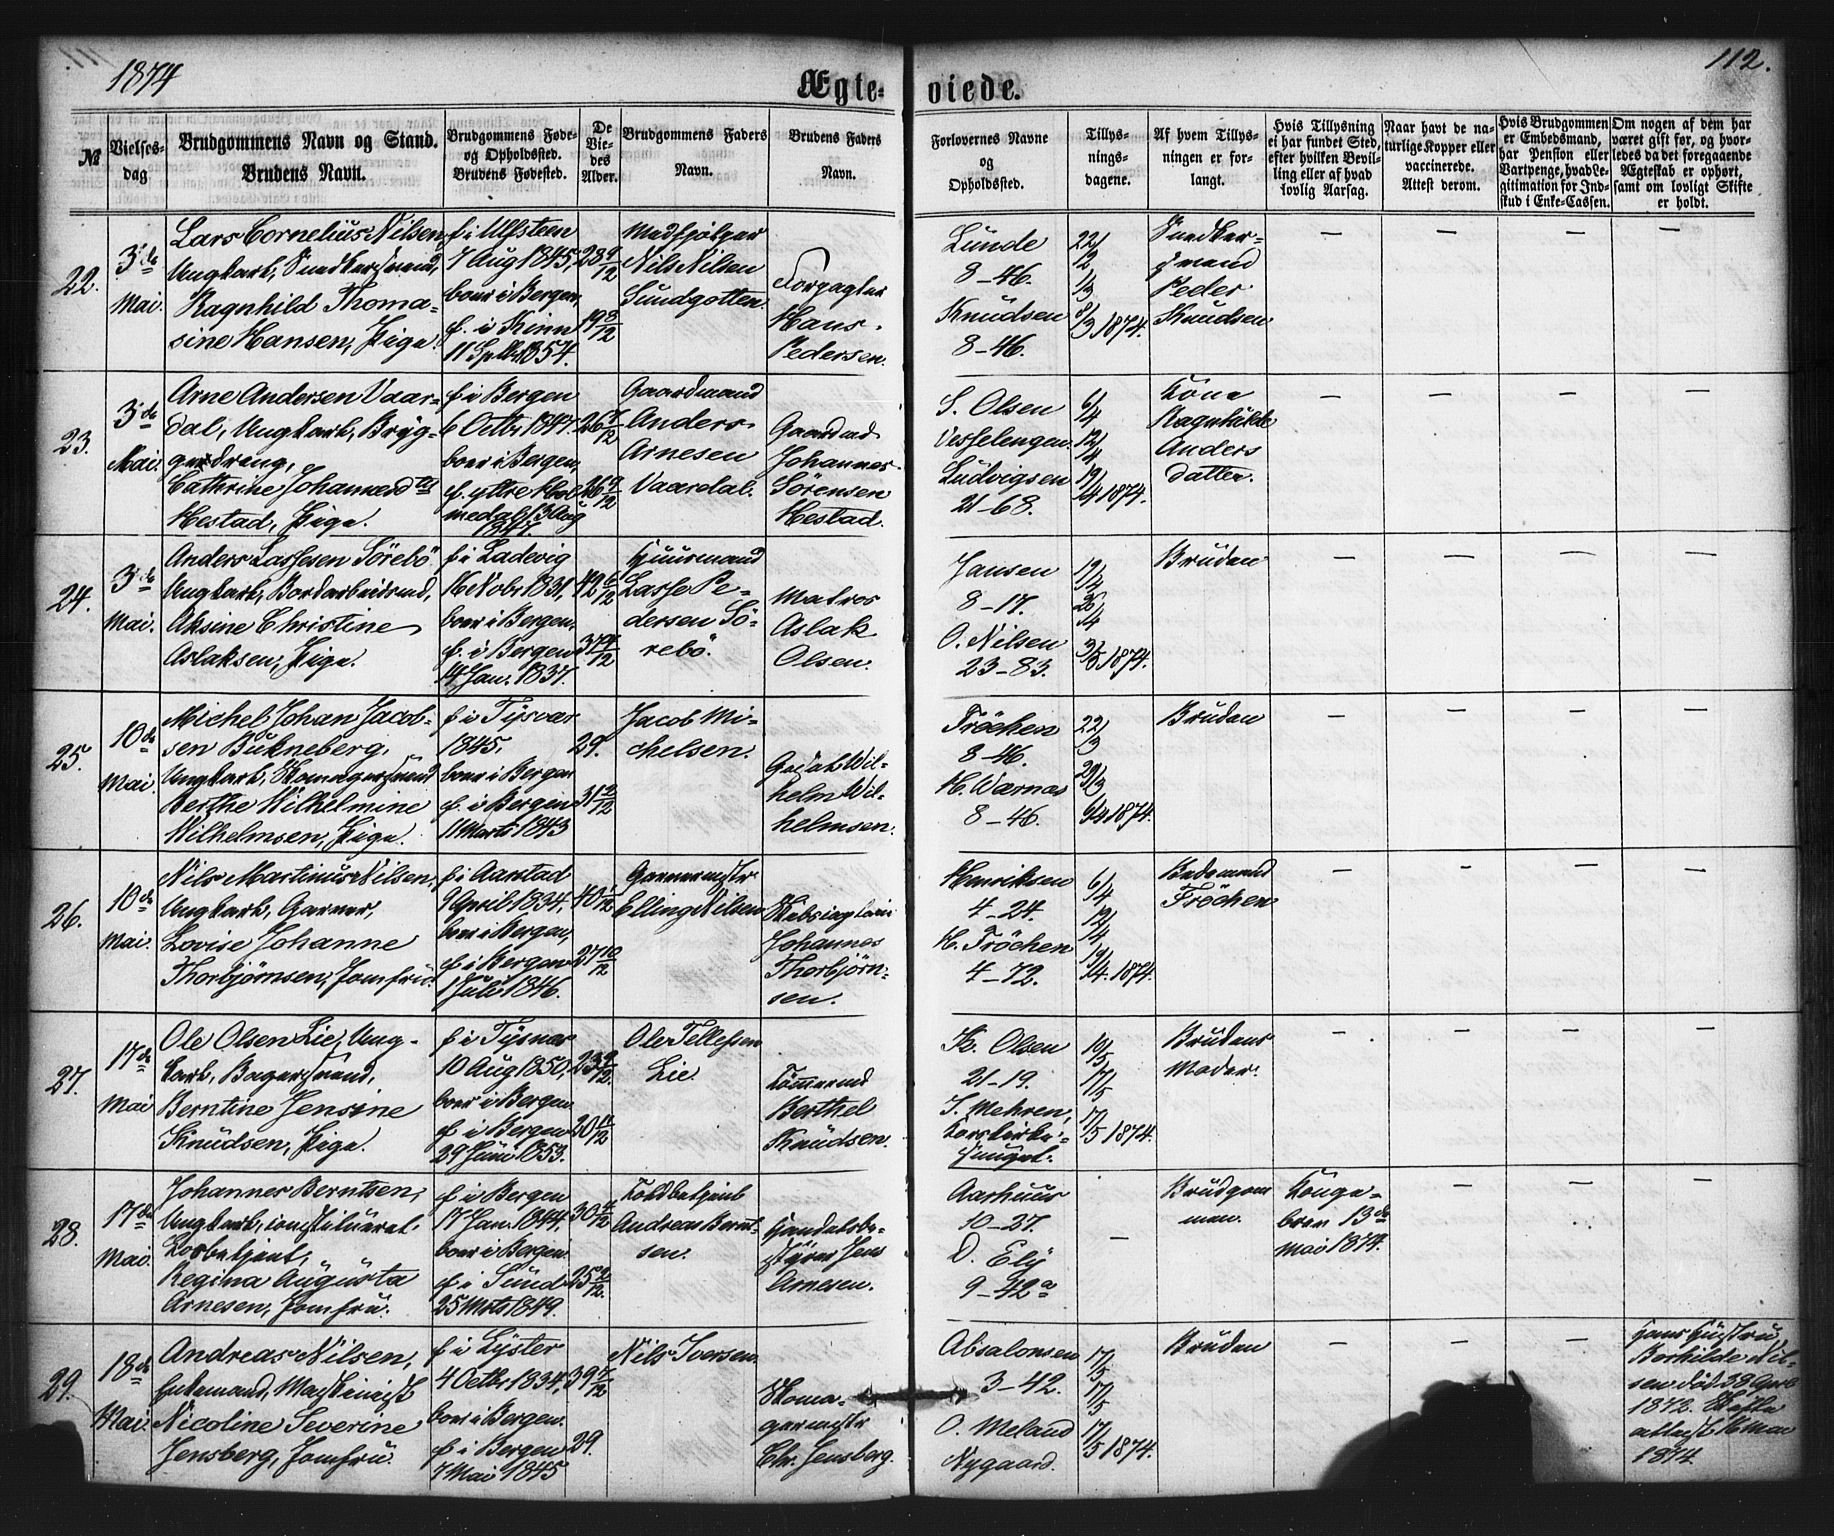 1874
112.
Ægte-
viede.
№
Vielses-
dag
Brudgommens Navn og Stand.
Brudens Navn.
Brudgommens Føde-
og Opholdssted.
Brudens Fødested.
De
Vie-
des
Alder.
Brudgommens Faders
Navn.
Brudens Faders
Navn.
Forlovernes Navne
og
Opholdssted.
Tillys-
nings-
dagene.
Af hvem Tillys-
ningen er for-
langt.
Hvis Tillysning
ei har fundet Sted,
efter hvilken Bevil-
ling eller af hvad
lovlig Aarsag.
Naar havt de na-
turlige Kopper eller
vaccinerede.
Attest derom.
Hvis Brudgommen
er Embedsmand,
har Pension eller
Vartpenge, hvad Le-
gitimation for Ind-
skud i Enke-Cassen.
Om nogen af dem har
været gift før, og hvor-
ledes da det foregaaende
Ægteskab er ophørt,
samt om lovligt Skifte
er holdt.
22.
3die
Mai.
Lars Cornelius Nilsen,
Ungkarl, Snedkersvend,
Ragnhild Thoma-
sine Hansen, Pige.
f. i Ulfsteen
7 Aug 1845,
boer i Bergen,
f. i Kinn
11 Septbr 1854.
28 9/12
19 8/12
Nils Nilsen
Sundgotten.
Forpagter
Hans
Pedersen.
Lunde
8-46.
Knudsen
8-46.
22/2
1/3
8/3 1874.
Snedker-
svend
Peder
Knudsen
— — — —
23.
3die
Mai.
Arne Andersen Vaar-
dal, Ungkarl, Bryg-
gerdreng,
Cathrine Johannesdtr
Hestad, Pige.
f. i Bergen
6 Octbr 1847.
boer i Bergen,
f. yttre Hol-
medal 13 Aug
1847.
26 7/12
26 9/12
Gaardmand
Anders
Arnesen
Vaardal.
Gaardmd
Johannes
Sörensen
Hestad.
S. Olsen
Vesselengen.
Ludvigsen
21-68.
6/4
12/4
19/4 1874.
Kone
Ragnhilde
Anders
datter.
— — — —
24.
3die
Mai.
Anders Lassesen Sörebö
Ungkarl, Bordarbeidsmd,
Aksine Christine
Aslaksen, Pige.
f. i Ladevig
16 Novbr 1831.
boer i Bergen,
f. i Bergen
14 Jan. 1837.
42 6/12
37 4/12
Huusmand
Lasse Pe-
dersen Sö-
rebö.
Matros
Aslak
Olsen.
Jansen
8-17.
O. Nilsen
23-83.
19/4
26/4
3/5 1874.
Bruden
— — — —
25.
10de
Mai.
Michel Johan Jacob-
sen Bukneberg,
Ungkarl, Skomagersvend
Berthe Wilhelmine
Wilhelmsen, Pige.
f. i Tysvær
1845,
boer i Bergen
f. i Bergen
11 Marts 1843
29.
31 2/12
Jacob Mi-
chelsen.
Wil-
helm Wil-
helmsen.
Tröchen
8-46.
H. Wærnes
8-46.
22/3
29/3
6/4 1874.
Bruden
— — — —
26.
10de
Mai.
Nils Martinus Nilsen,
Ungkarl, Garver,
Lovise Johanne
Thorbjørnsen, Jomfru.
f. i Aarstad
9 April 1834,
boer i Bergen,
f. i Bergen
1 Juli 1846.
40 1/12
27 10/12
Garvermester
Elling Nilsen
Skibscaptain
Johannes
Thorbjørn-
sen.
Henriksen
4-24.
H. Tröchen
4-72.
6/4
12/4
19/4. 1874.
Bedemand
Tröchen
— — — —
27.
17de
Mai
Ole Olsen Lie, Ung-
karl, Bagersvend,
Berntine Jensine
Knudsen, Pige.
f. i Tysnæs
10 Aug 1850,
boer i Bergen.
f. i Bergen
29 Juni 1853.
23 9/12
20 11/12
Ole Tellefsen
Lie.
Tömmermd
Berthel
Knudsen.
K. Olsen
21-19.
J. Mehren,
Korskirke-
smuget.
10/5
17/5
17/5 1874.
Brudens
Moder.
— — — —
28.
17de
Mai.
Johannes Berntsen,
Ungkarl, constitueret
Losbetjent,
Regina Augusta
Arnesen, Jomfru.
f. i Bergen
17 Jan. 1844,
boer i Bergen.
f. i Sund
25 Mrts 1849.
30 4/12
25 2/12
Toldbetjent
Andreas Bernt-
sen.
Handelsbe-
styrer Jens
Arnesen.
Aarhuus
10-27.
D. Ely
9-42a
—
Brudgom
men.
Konge-
brev 13de
Mai 1874.
— — —
29.
18de
Mai.
Andreas Nilsen,
Enkemand, Maskinist
Nicoline Severine
Jensberg, Jomfru.
f. i Lyster
4 Octbr 1834,
boer i Bergen.
f. i Bergen
7 Mai 1845
39 7/12
29.
Nils Iversen.
Skoma-
germester
Chr. Jensberg.
Absalonsen
3-42.
O. Meland
Nygaard.
17/5
17/5
17/5 1874.
Bruden
— — —
Hans Hustru
Borhilde Nil-
sen död 29 April
1872. Skifte
attest 16 Mai
1874